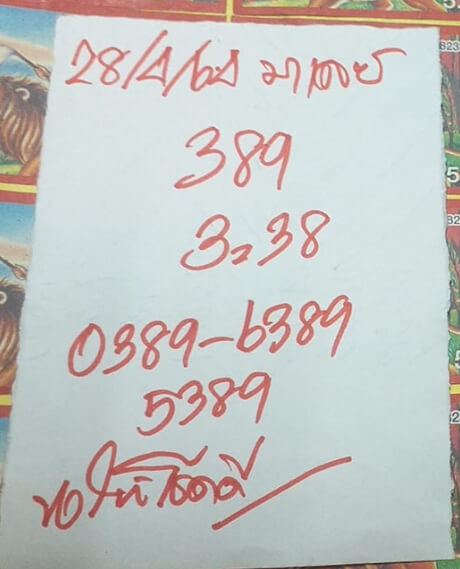 28/4/64 มาเลย์
389
3=38
0389-6389
5389
ขอให้โชคดี